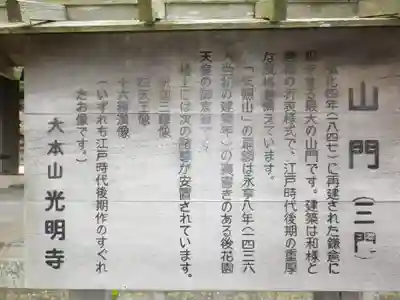 山門（三門）
弘化四年（一八四七）に再建された鎌倉に
現存する最大の山門です。建築は和様と
唐様の折衷様式で、江戸時代後期の重厚
な風格を備えています。
「天照山」の扁額は永享八年（一四三六
、当初の建築年）の裏書きのある後花園
天皇の御宸筆です。
楼上には次の諸尊が安置されています。
釈迦三尊像
四天王像
十六羅漢像
（いずれも江戸時代後期作のすぐれ
たお像です。）
大本山 光明寺